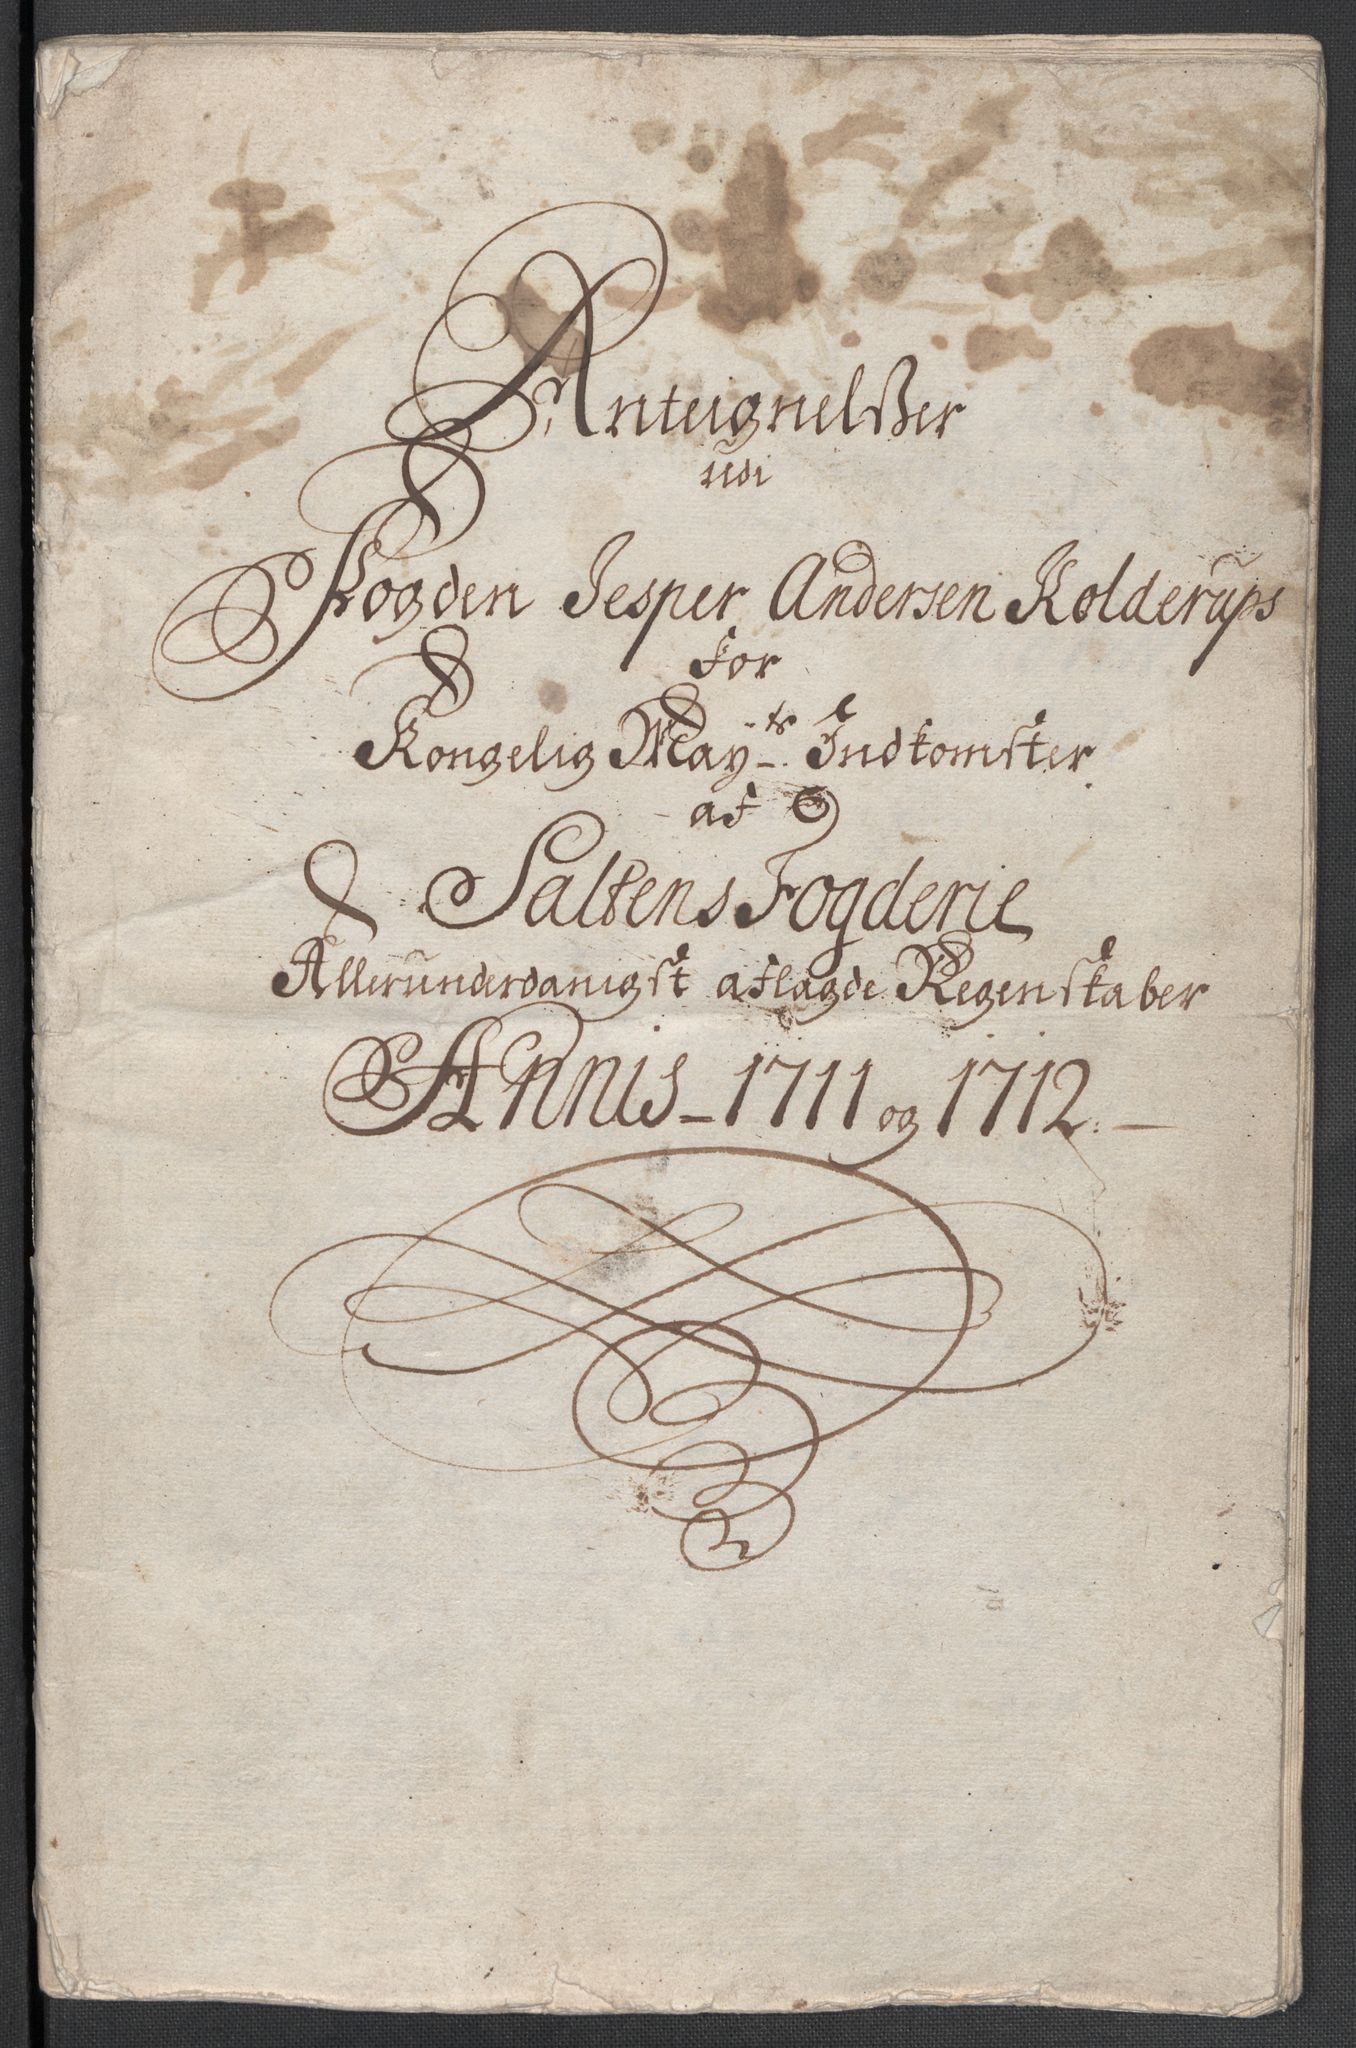 Anteignelßer
udi
Fogden Jesper Andersen Kolderups
for
Kongelig May:ts Indkomster
af
Saltens Fogderie
Allerunderdanigst aflagde Regenskaber
Annis - 1711 og 1712.